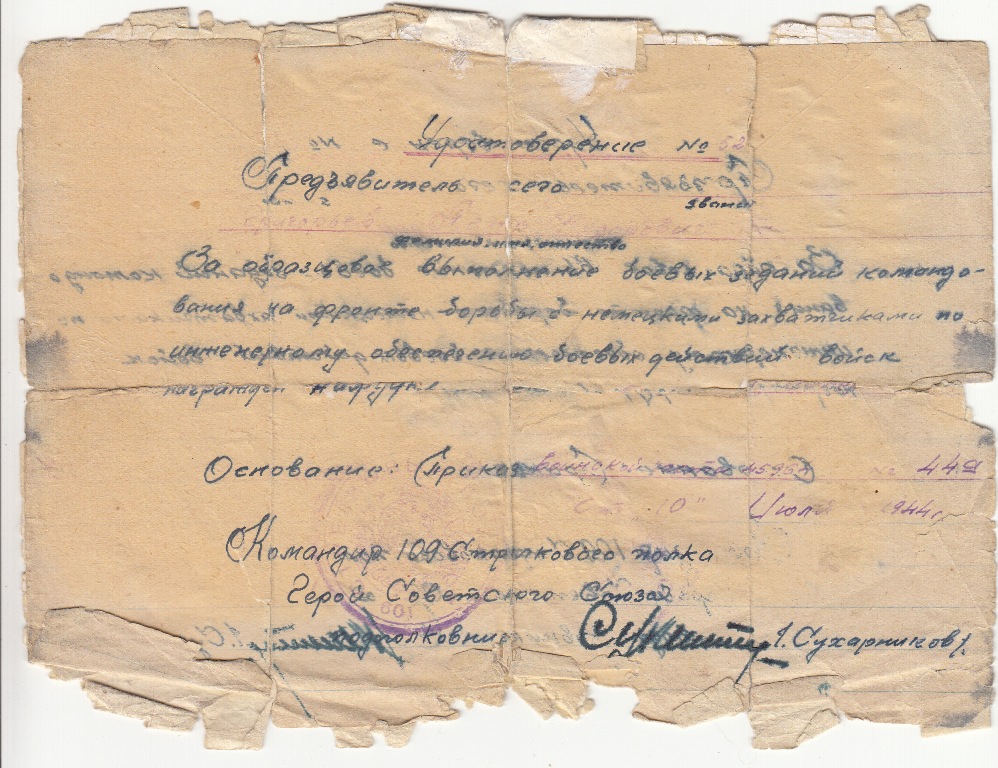 Удостоверение № 52
Предъявитель сего
звание
фамилия, имя, отчество
За образцевае выполнение боевых заданий командо-
вания на фронте борьбы с немецкими захватчиками по
инженерному обеспечению боевых действий войск
награжден нагрудн
Основание: Приказ 45962 № 449
с "10" Июля 1944 г.
Командир 109 Стрелкового полка
Герой Советского Союза
подполковник /. Сухарников /.